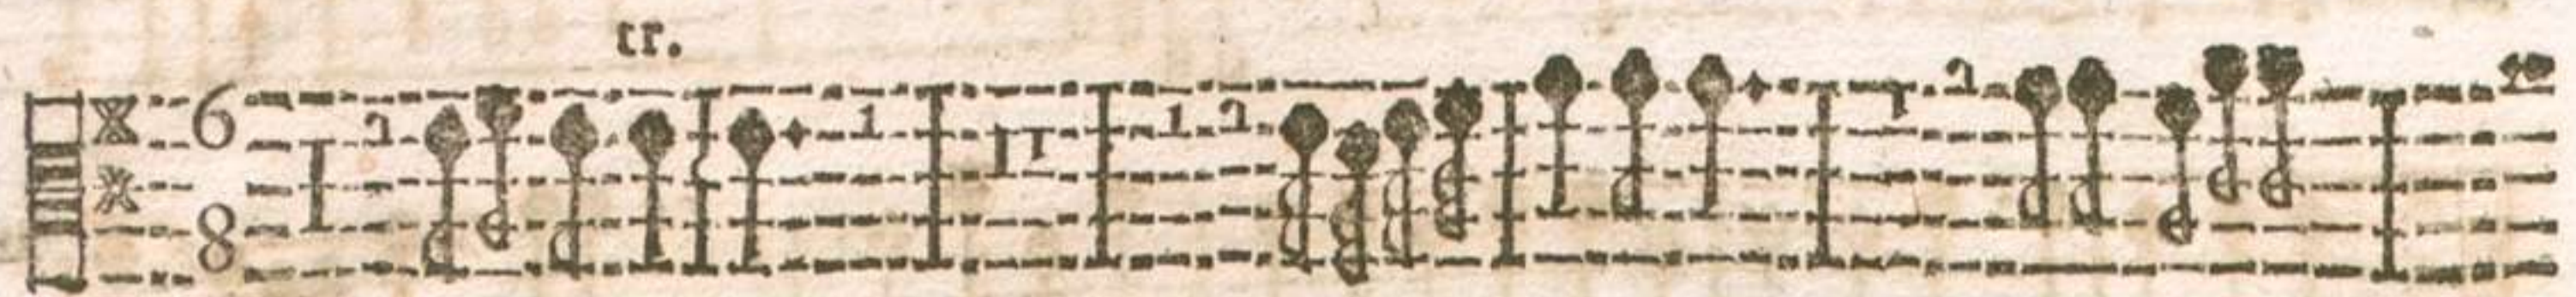 tr.
6
8